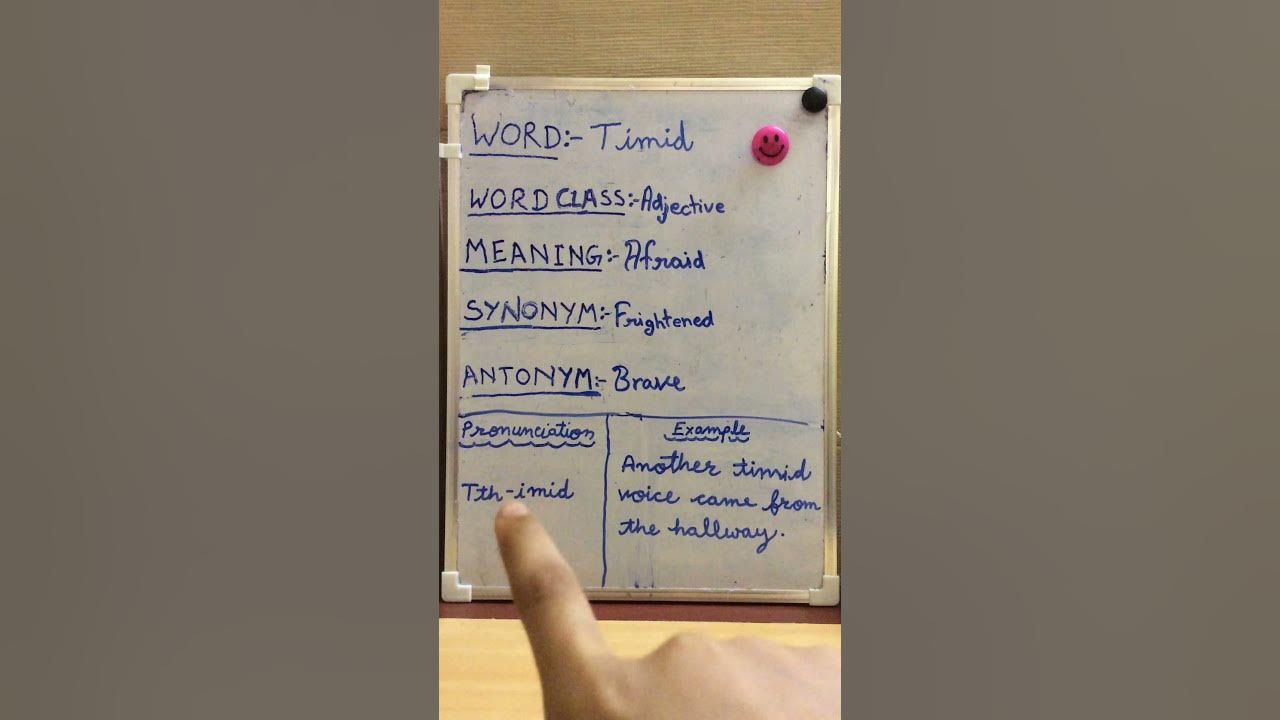 WORD:- Timid
WORD CLASS:- Adjective
MEANING:- Afraid
SYNONYM:- Frightened
ANTONYM:- Brave
Pronunciation
Tth-imid
Example
Another timid
voice came from
the hallway.